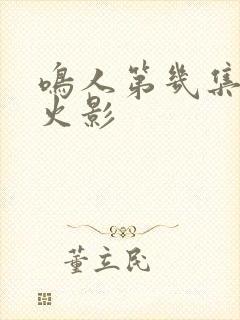 鸣人第几集
火影
董立民